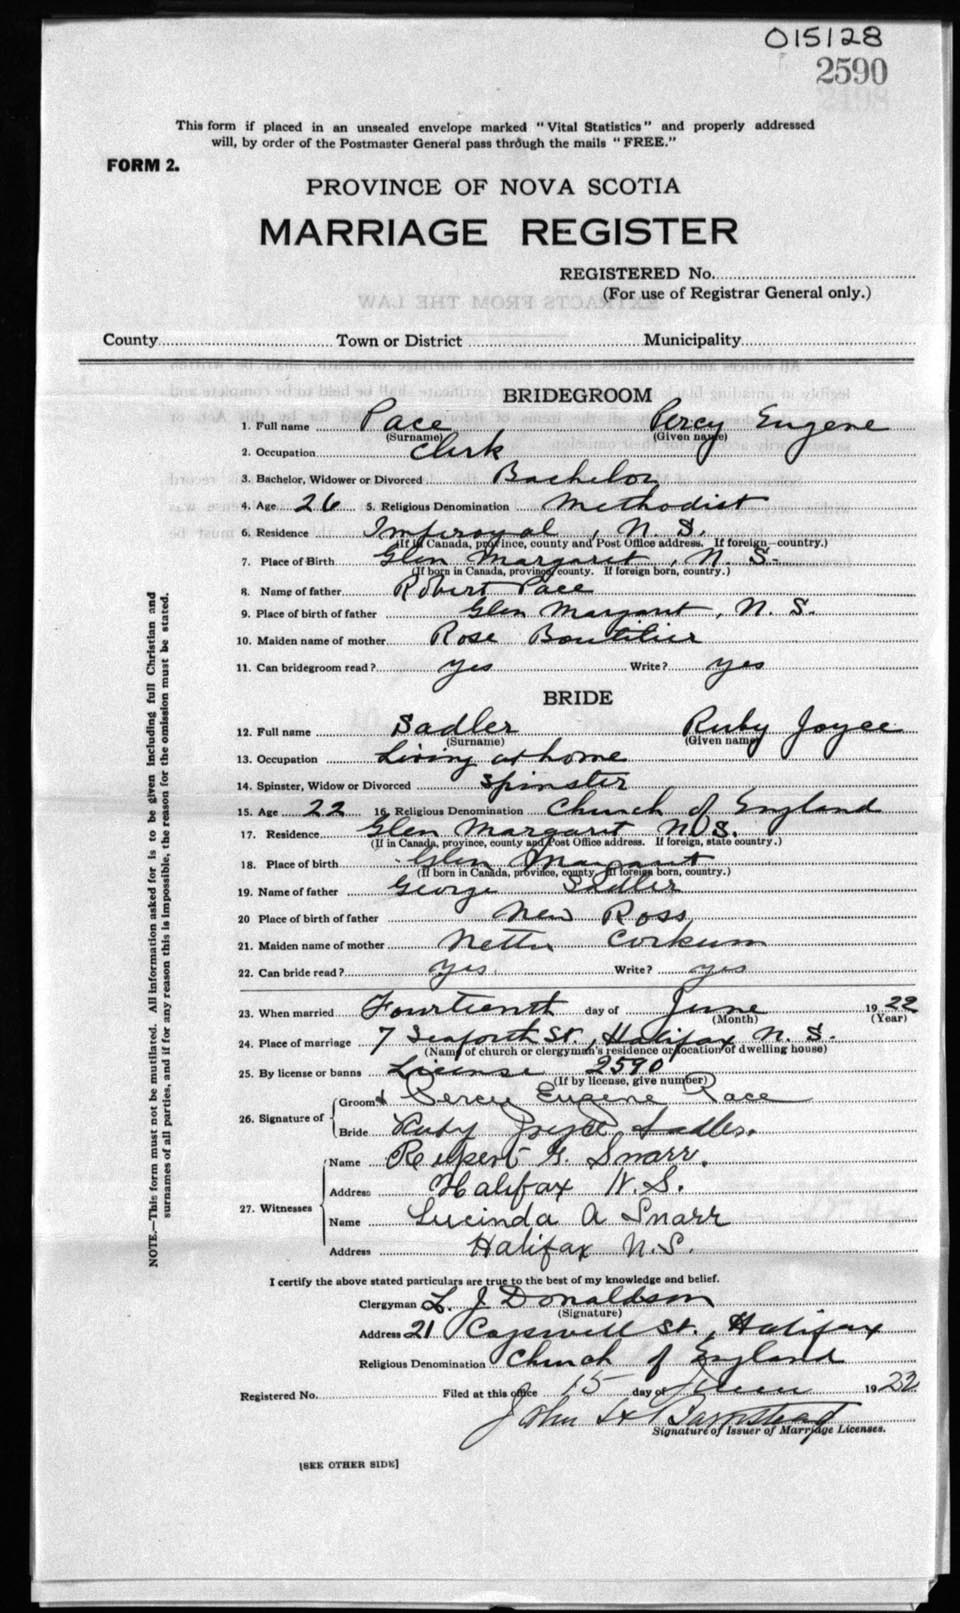 015128
2590
This form if placed in an unsealed envelope marked "Vital Statistics" and properly addressed
will, by order of the Postmaster General pass through the mails "FREE."
FORM 2.
PROVINCE OF NOVA SCOTIA
MARRIAGE REGISTER
REGISTERED No.
(For use of Registrar General only.)
County Town or District Municipality
BRIDEGROOM
1. Full name Pace Percy Eugene
(Surname) (Given name)
2. Occupation Clerk
3. Bachelor, Widower or Divorced Bachelor
4. Age 26 5. Religious Denomination Methodist
6. Residence Imperoyal, N. S.
(If in Canada, province, county and Post Office address. If foreign—country.)
7. Place of Birth Glen Margaret, N. S.
(If born in Canada, province, county. If foreign born, country.)
8. Name of father Robert Pace
9. Place of birth of father Glen Margaret, N. S.
10. Maiden name of mother Rose Boutilier
11. Can bridegroom read? yes Write? yes
BRIDE
12. Full name Sadler Ruby Joyce
(Surname) (Given name)
13. Occupation Living at home
14. Spinster, Widow or Divorced Spinster
15. Age 22 16. Religious Denomination Church of England
17. Residence Glen Margaret N. S.
(If in Canada, province, county and Post Office address. If foreign, state country.)
18. Place of birth Glen Margaret
(If born in Canada, province, county. If foreign born, country.)
19. Name of father George Sadler
20 Place of birth of father New Ross
21. Maiden name of mother Nettie Corkum
22. Can bride read? yes Write? yes
23. When married Fourteenth day of June 1922
(Month) (Year)
24. Place of marriage 7 Seaforth St., Halifax N. S.
(Name of church or clergyman's residence or location of dwelling house)
25. By license or banns License 2590
(If by license, give number)
26. Signature of Groom Percy Eugene Pace
Bride Ruby Joyce Sadler.
27. Witnesses Name G. Snarr.
Address Halifax N. S.
Name Lucinda A Snarr
Address Halifax N. S.
I certify the above stated particulars are true to the best of my knowledge and belief.
Clergyman L. J. Donaldson
(Signature)
Address 21 St., Halifax
Religious Denomination Church of England
Registered No. Filed at this office 15 day of June 1922
John
Signature of Issuer of Marriage Licenses.
[SEE OTHER SIDE]
NOTE.—This form must not be mutilated. All information asked for is to be given including full Christian and
surnames of all parties, and if for any reason this is impossible, the reason for the omission must be stated.